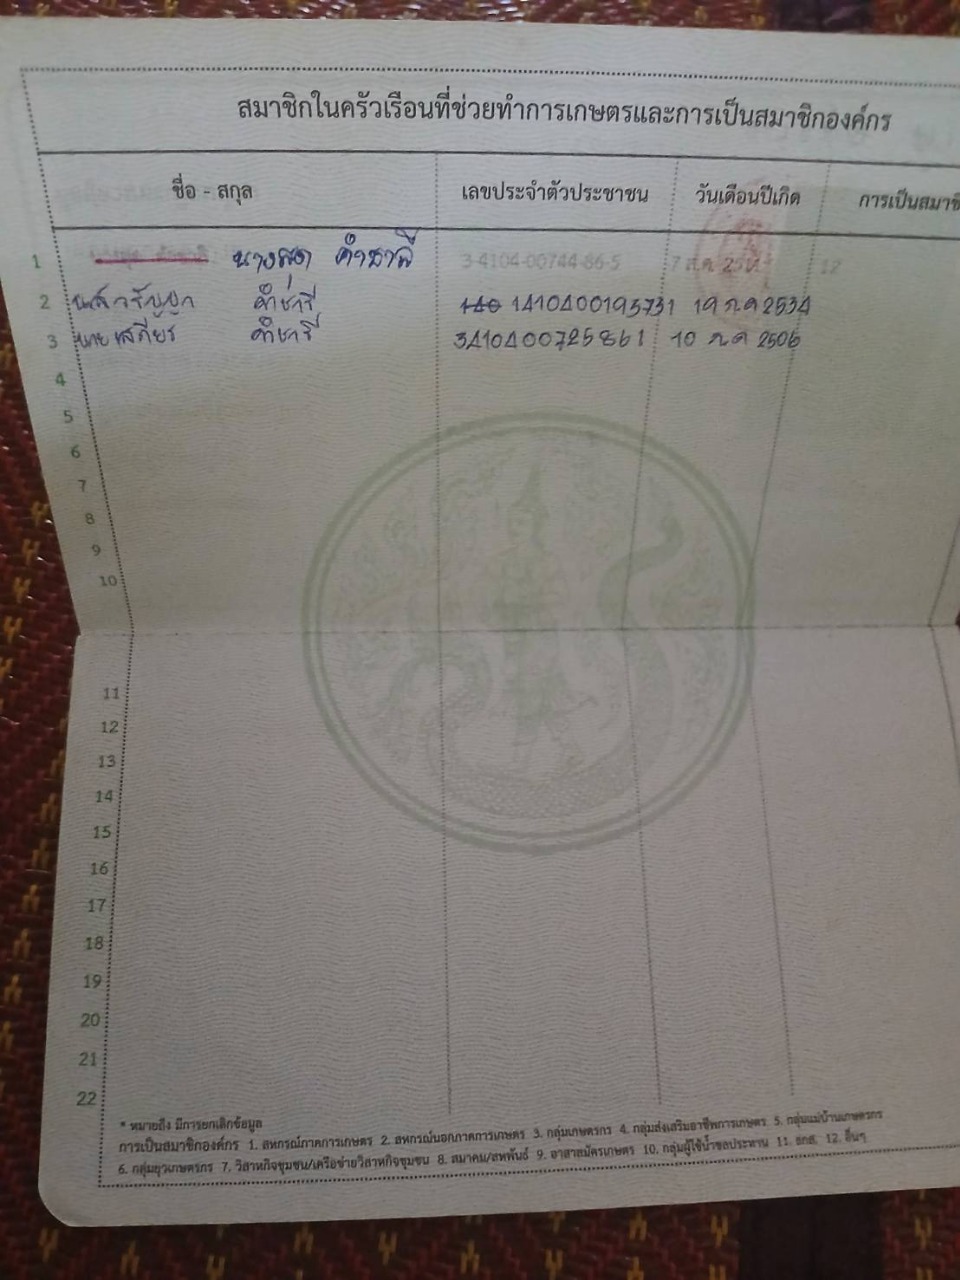 สมาชิกในครัวเรือนที่ช่วยทำการเกษตรและการเป็นสมาชิกองค์กร
ชื่อ - สกุล เลขประจำตัวประชาชน วันเดือนปีเกิด การเป็นสมาชิ
1 คำชารี 3-4104-00744-86-5 7 12
2 คำชารี 1410400195731 19 ก.ค 2534
3 นายเสถียร คำชารี 3410400725861 10 ก.ค 2506
4
5
6
7
8
9
10
11
12
13
14
15
16
17
18
19
20
21
22
* หมายถึง มีการยกเลิกข้อมูล
การเป็นสมาชิกองค์กร 1. สหกรณ์ภาคการเกษตร 2. สหกรณ์นอกภาคการเกษตร 3. กลุ่มเกษตรกร 4. กลุ่มส่งเสริมอาชีพการเกษตร 5. กลุ่มแม่บ้านเกษตรกร
6. กลุ่มยุวเกษตรกร 7. วิสาหกิจชุมชน/เครือข่ายวิสาหกิจชุมชน 8. สมาคม/สหพันธ์ 9. อาสาสมัครเกษตร 10. กลุ่มผู้ใช้น้ำชลประทาน 11. ธกส. 12. อื่นๆ